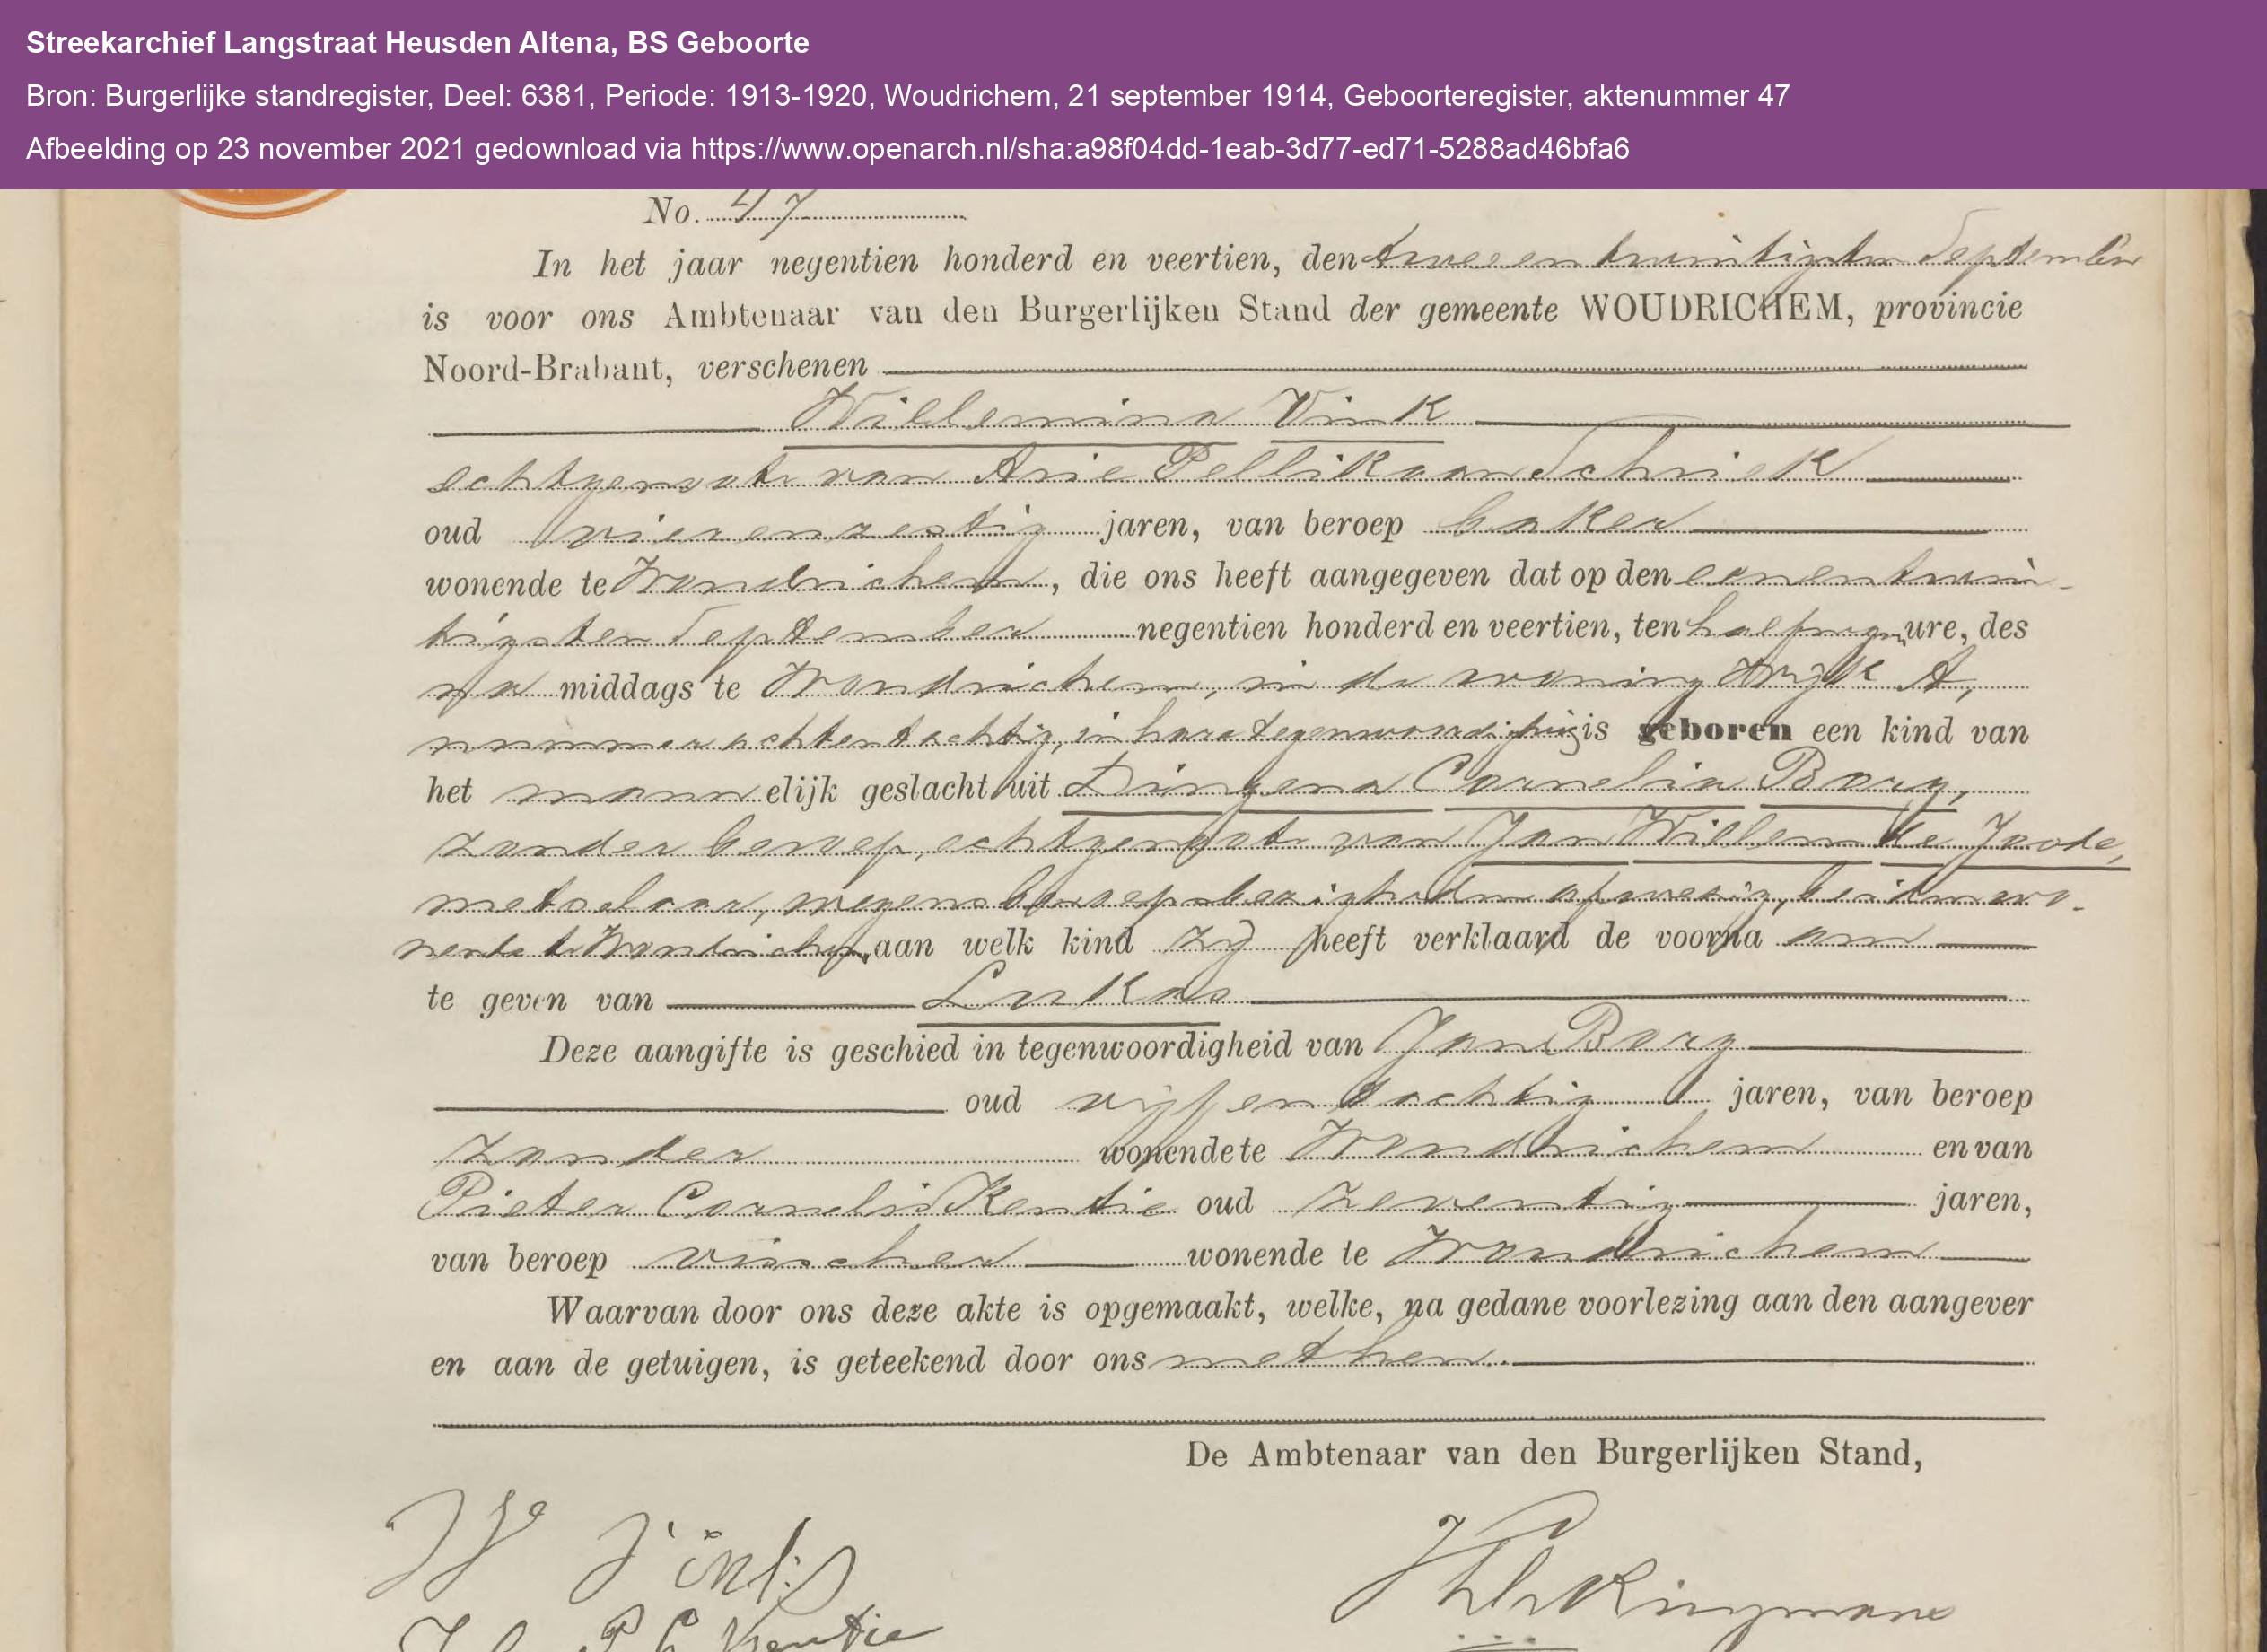 Streekarchief Langstraat Heusden Altena, BS Geboorte
Bron: Burgerlijke standregister, Deel: 6381, Periode: 1913-1920, Woudrichem, 21 september 1914, Geboorteregister, aktenummer 47
Afbeelding op 23 november 2021 gedownload via https://www.openarch.nl/sha:a98f04dd-1eab-3d77-ed71-5288ad46bfa6
No. 47
In het jaar negentien honderd en veertien, den tweeentwintigsten September
is voor ons Ambtenaar van den Burgerlijken Stand der gemeente WOUDRICHEM, provincie
Noord-Brabant, verschenen
Willemina Vink
echtgenoote van Arie Pellikaan Schriek
oud vierenzestig jaren, van beroep baker
wonende te Woudrichem, die ons heeft aangegeven dat op den eenentwin-
tigsten September negentien honderd en veertien, ten half negen ure, des
na middags te Woudrichem, in de woning Wijk A,
nummer achtentachtig, in hare tegenwoordigheid is geboren een kind van
het mannelijk geslacht uit Dingena Cornelia Borg,
zonder beroep, echtgenoote van Jan Willem de Joode,
metselaar, wegens beroepsbezigheden afwezig, beiden wo-
nende te Woudrichem, aan welk kind zij heeft verklaard de voorna am
te geven van Lukas
Deze aangifte is geschied in tegenwoordigheid van Jan Borg
oud vijfentachtig jaren, van beroep
zonder wonende te Woudrichem en van
Pieter Cornelis Kentie oud zeventig jaren,
van beroep visscher wonende te Woudrichem
Waarvan door ons deze akte is opgemaakt, welke, na gedane voorlezing aan den aangever
en aan de getuigen, is geteekend door ons met hen.
De Ambtenaar van den Burgerlijken Stand,
W Vink
P C Kentie